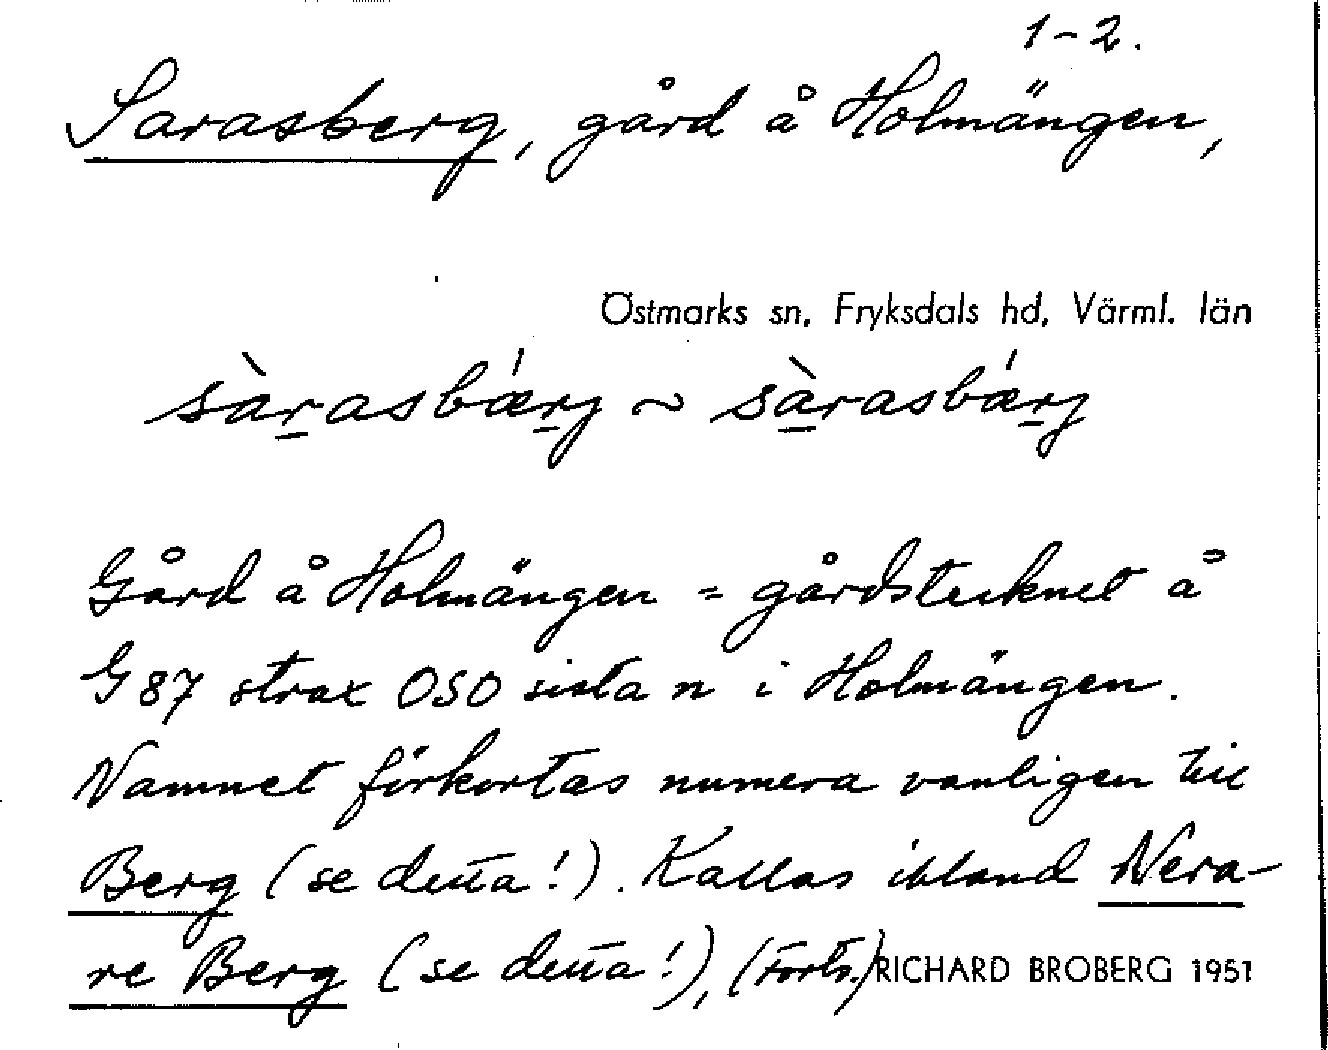 1-2.
Sarasberg, gård å Holmängen,
Östmarks sn, Fryksdals hd, Värml. län
sàrasbǽrj ~ sàrasbǽrj
Gård å Holmängen = gårdstecknet å
G 87 strax OSO sista n i Holmängen.
Namnet förkortas numera vanligen till
Berg (se detta!). Kallas ibland Nera-
re Berg (se detta!), (Forts.) RICHARD BROBERG 1951